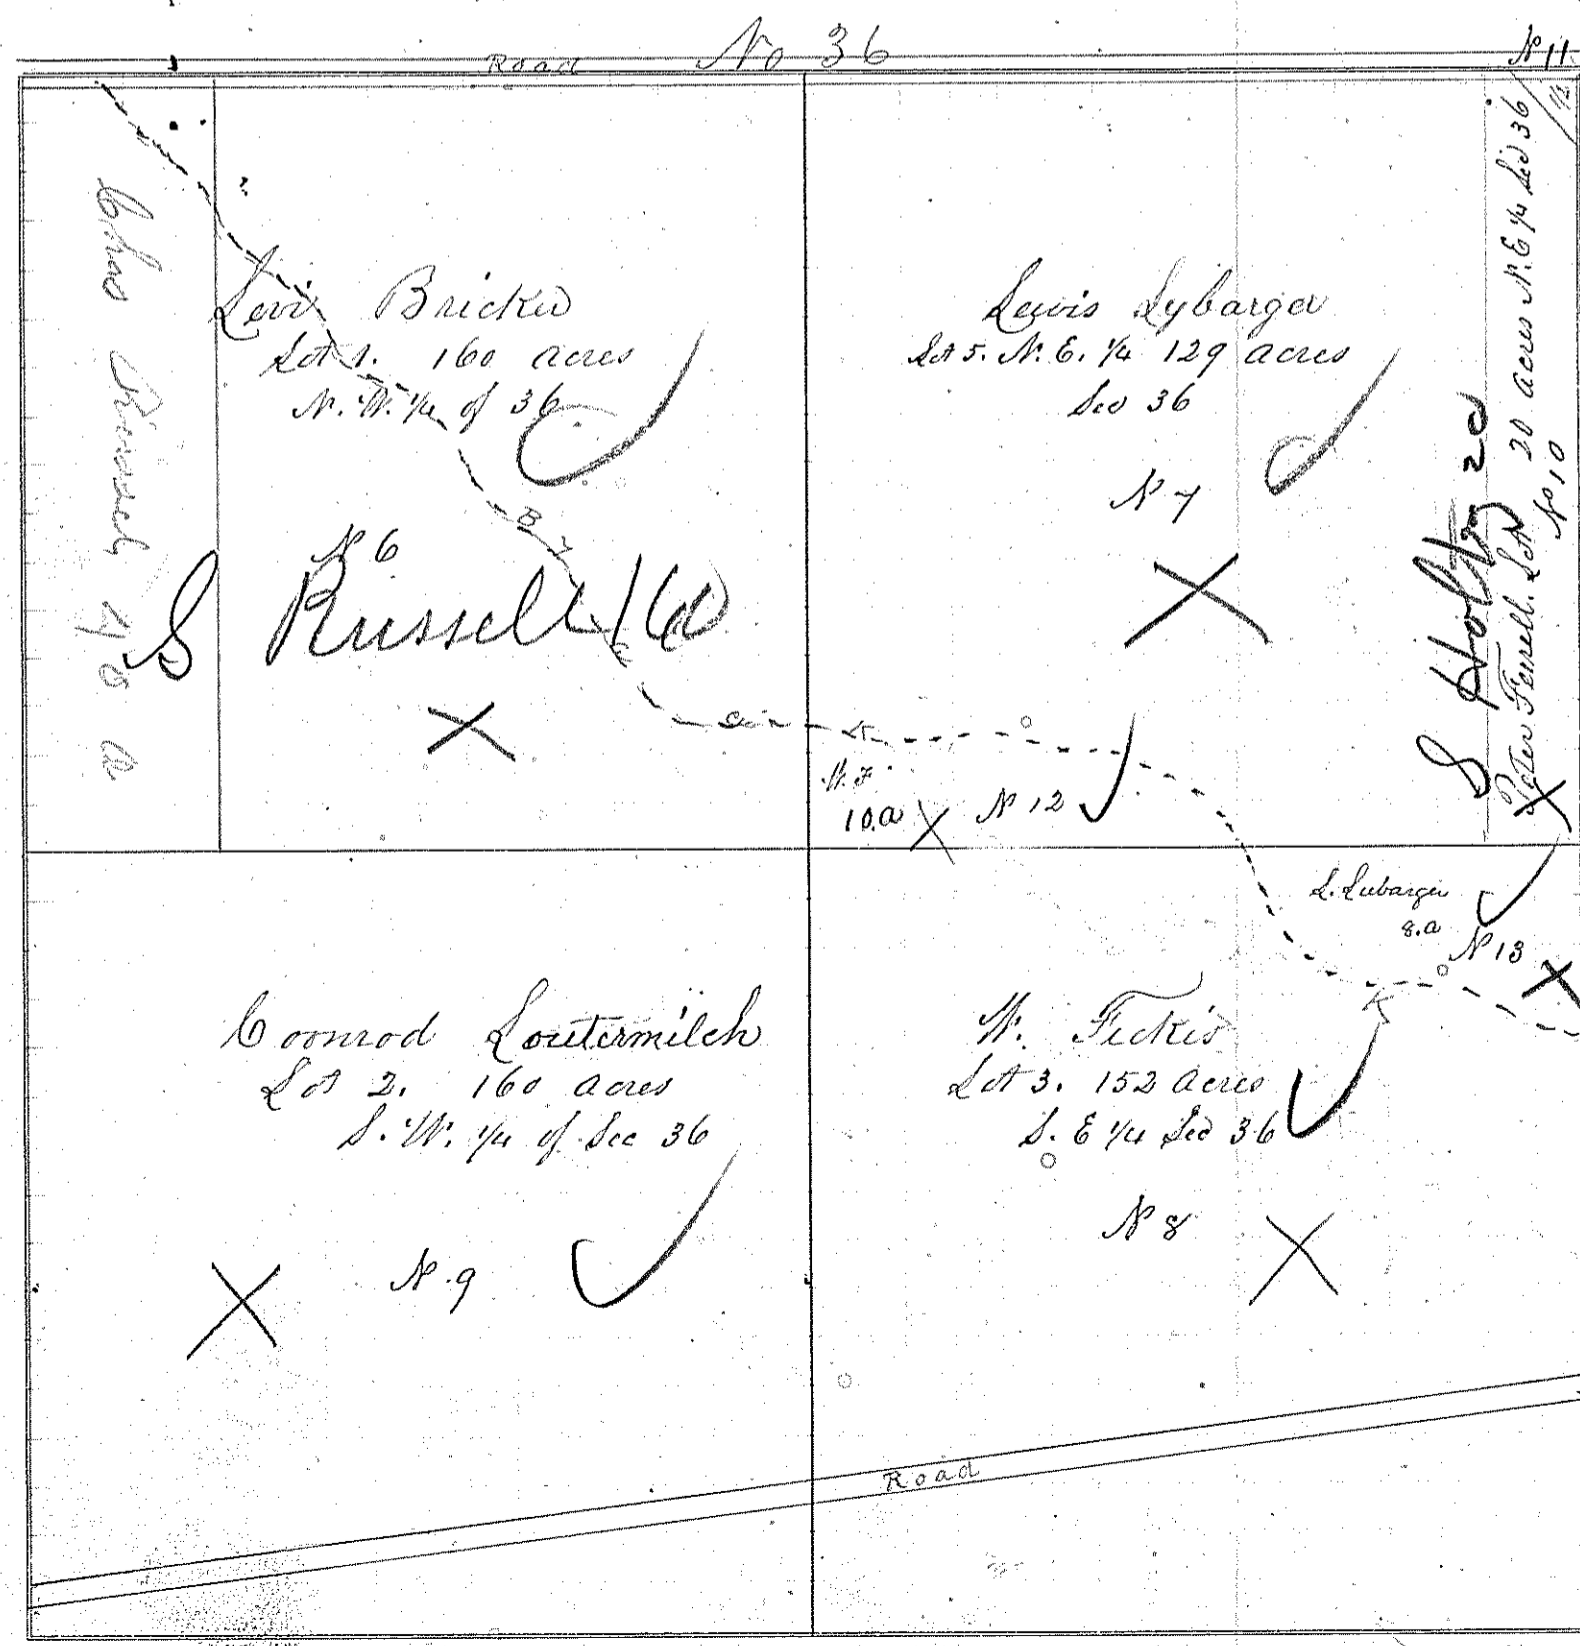 No 36
Road
No 11
1/2
Levi Bricker
Lot 1. 160 acres
N. W. 1/4 of 36
No 6
S Russell 160
Chas
40 a
Lewis Lybarger
Lot 5. N. E. 1/4 129 acres
Sec 36
No 7
S Holton 20
Peter Ferrell. Lot 20 acres N. E 1/4 Sec 36
No 10
W. F.
10.a No 12
L. Lubarger
8.a
No 13
Coonrod Loutermilch
Lot 2. 160 acres
S. W. 1/4 of Sec 36
No 9
W. Fickis
Lot 3. 152 Acres
S. E 1/4 Sec 36
No 8
Road